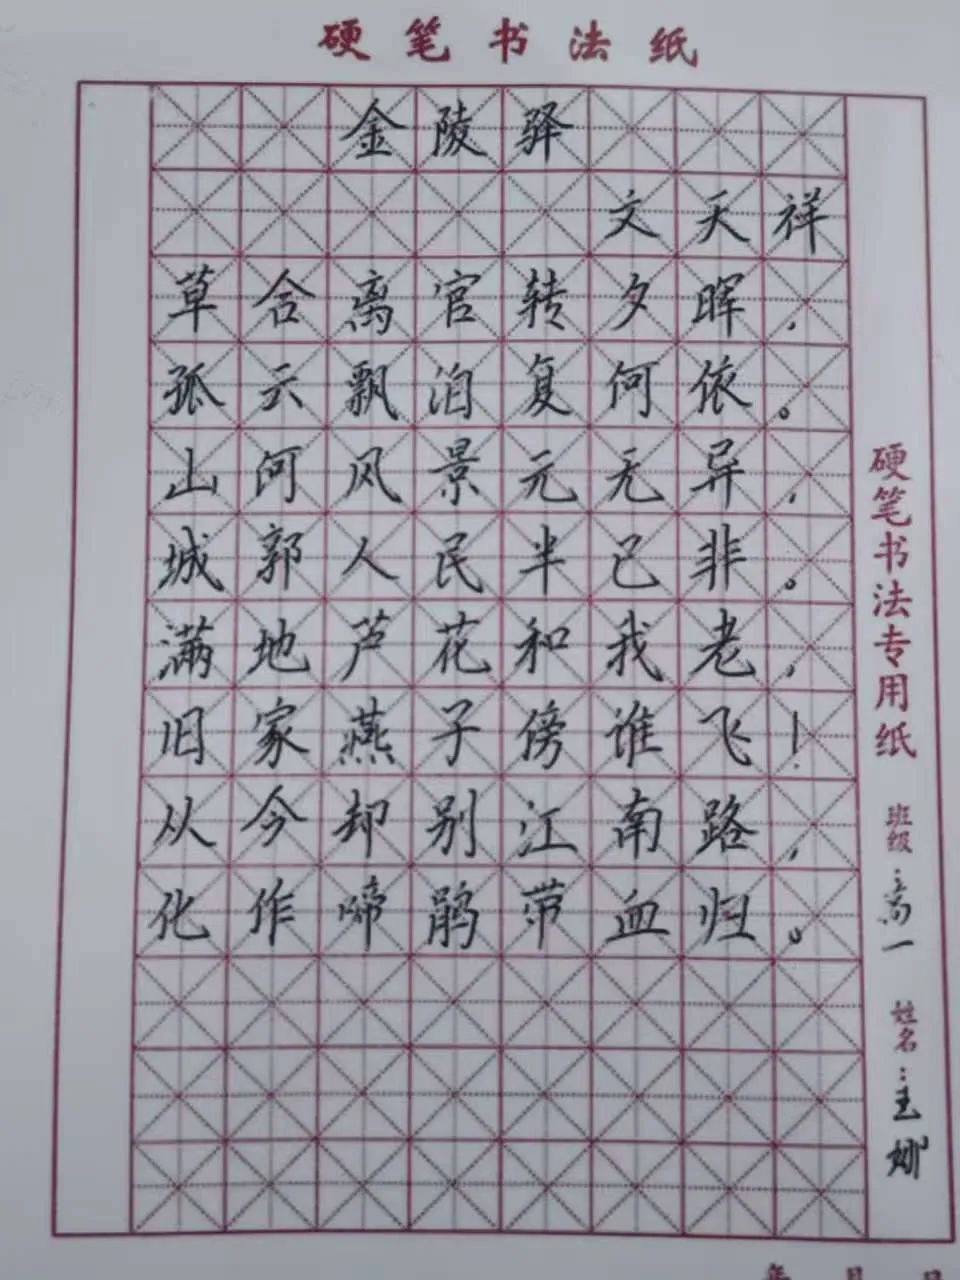 硬笔书法纸
金陵驿
文天祥
草合离官转夕晖，
孤云飘泊复何依。
山河风景元无异，
城郭人民半已非。
满地芦花和我老，
旧家燕子傍谁飞！
从今却别江南路，
化作啼鹃带血归。
硬笔书法专用纸
班级：高一
姓名：王娜
年 月 日